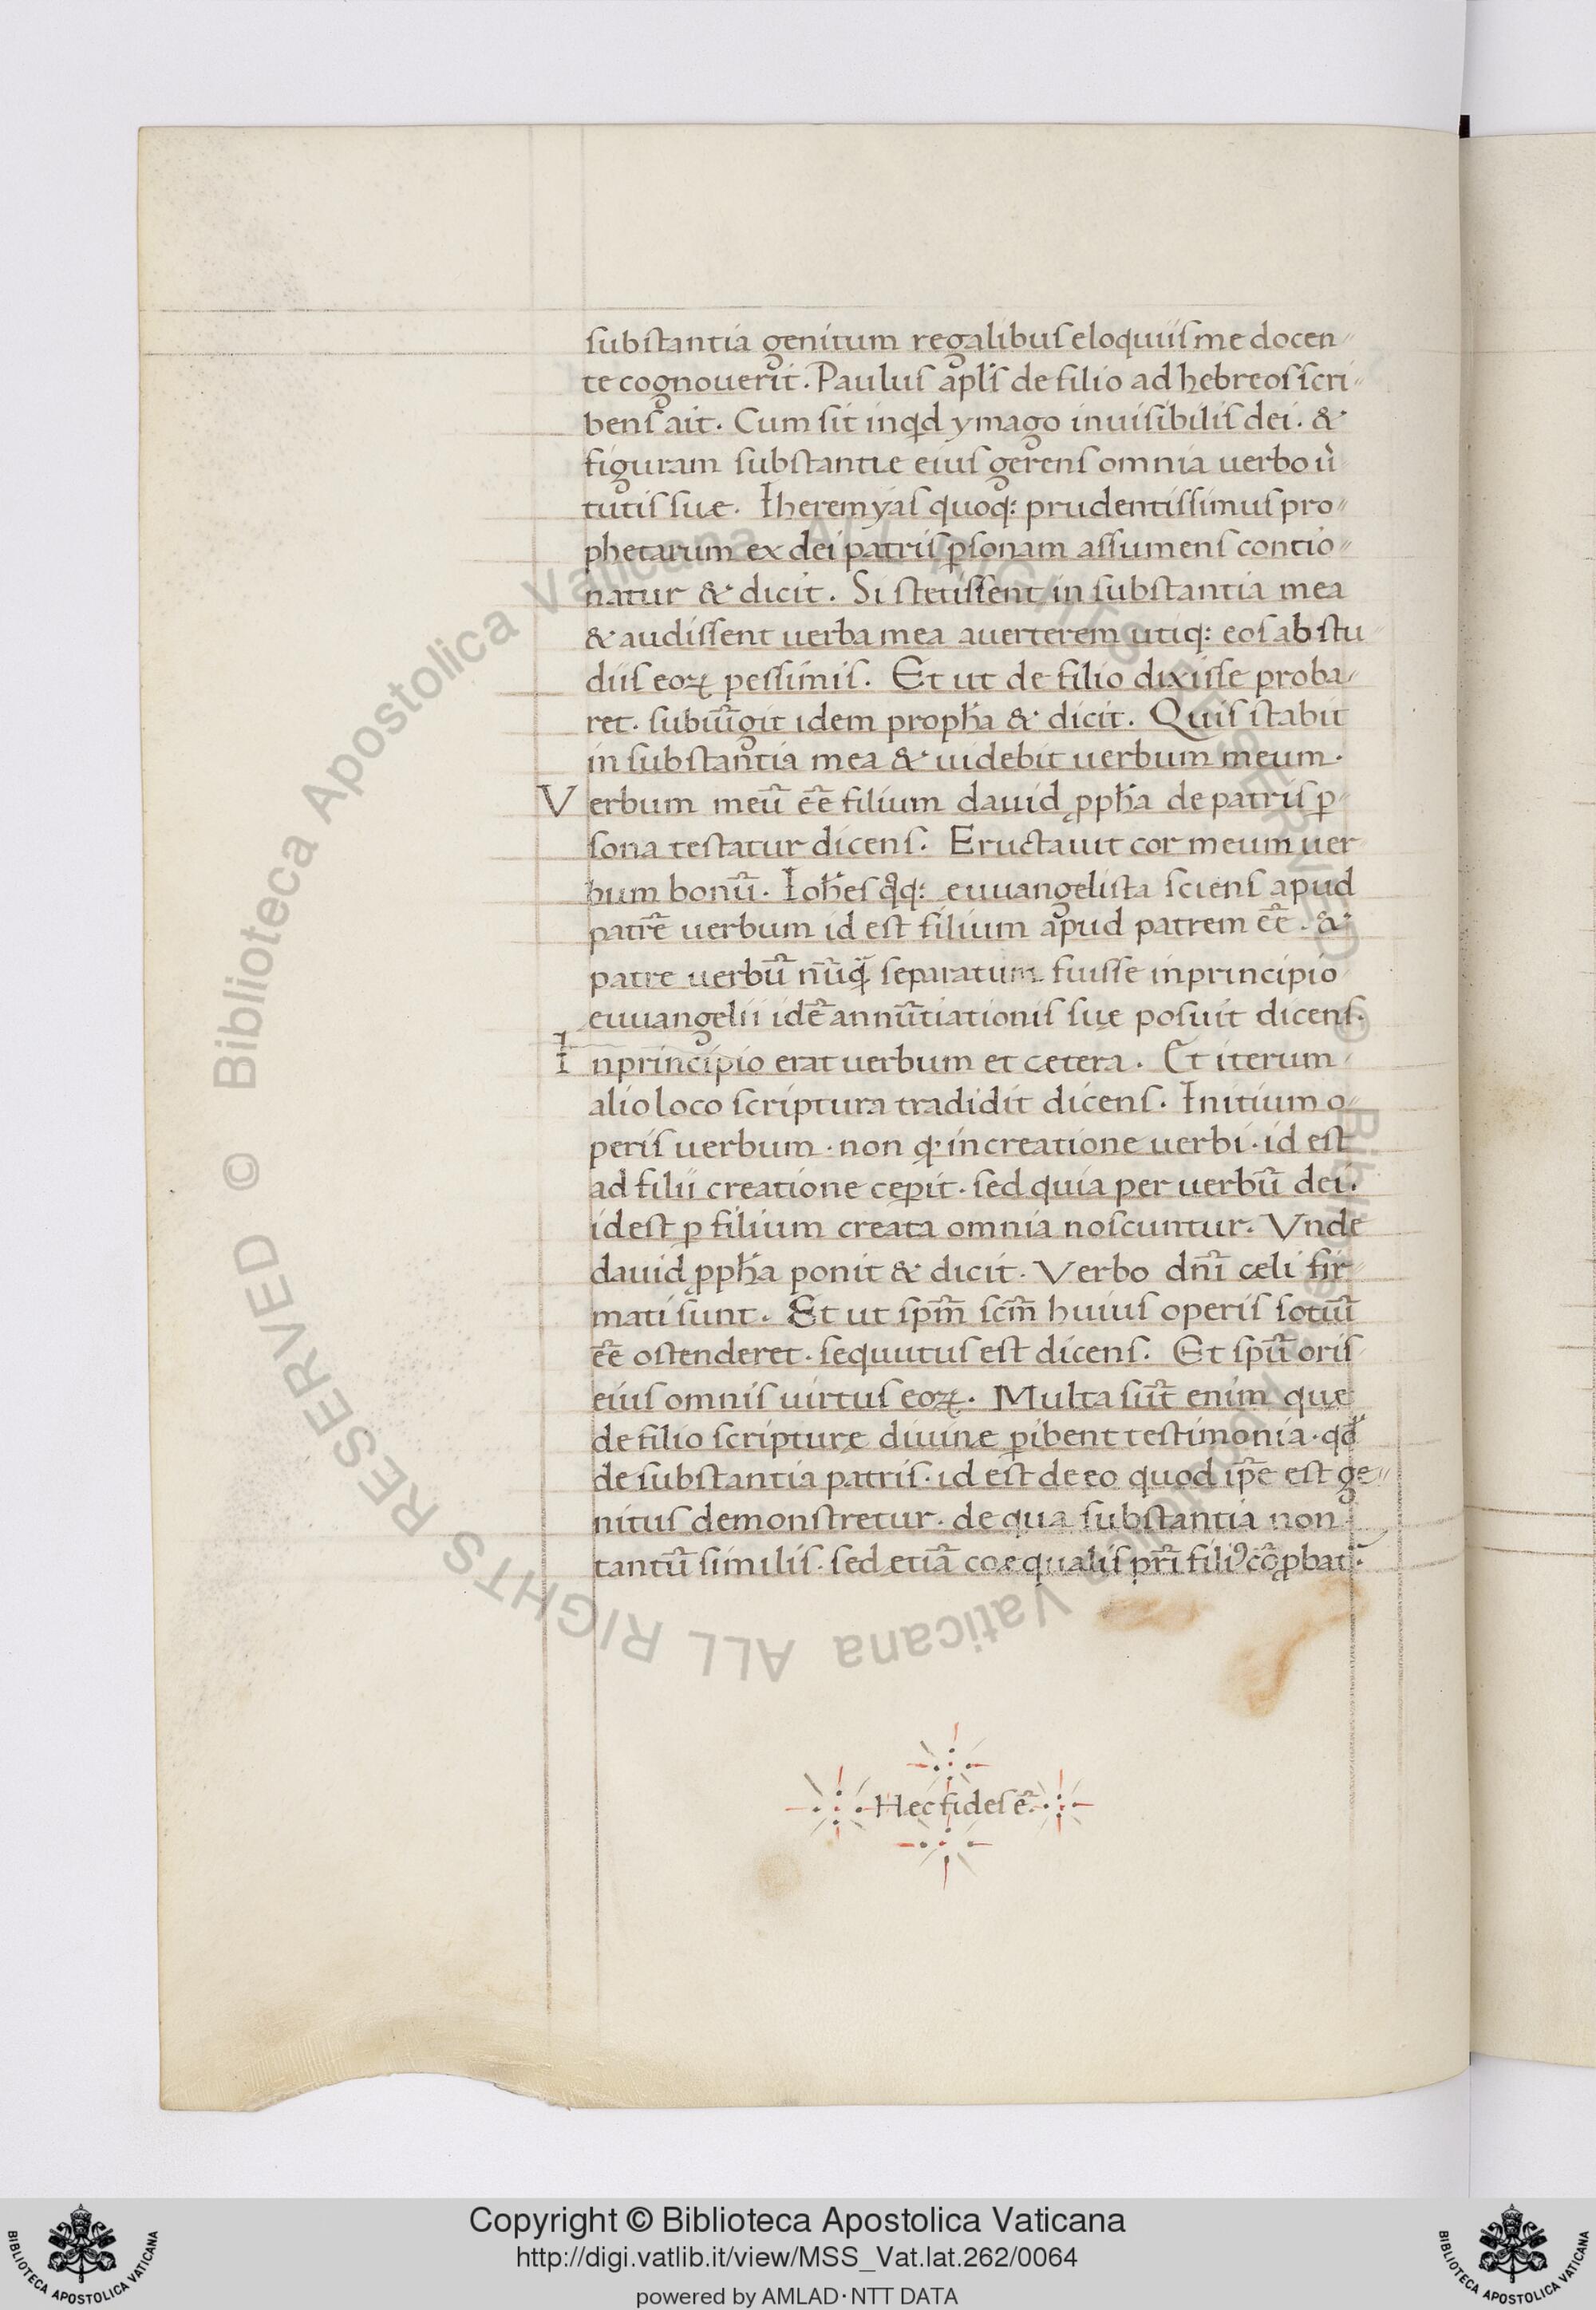 substantia genitum regalibus eloquiis me docen〃
te cognouerit. Paulus apl̄s de filio ad hebreos scri〃
bens ait. Cum sit inqd ymago inuisibilis dei. &
figuram substantie eius gerens omnia uerbo ũ
tutis suę. Iheremyas quoq: prudentissimus pro〃
phetarum ex dei patris ꝑsonam assumens contio〃
natur & dicit. Si stetissent in substantia mea
& audissent uerba mea auerterem utiq: eos ab stu〃
diis eoꝝ pessimis. Et ut de filio dixisse proba〃
ret. subiūgit idem proph̄a & dicit. Quis stabit
in substantia mea & uidebit uerbum meum.
Verbum meū eē filium dauid ꝓph̄a de patris ꝑ〃
sona testatur dicens. Eructauit cor meum uer
bum bonū. Ioh̄es qͦq: euuangelista sciens apud
patrē uerbum id est filium apud patrem eē. &
patre uerbū nūq̄ separatum fuisse inprincipio
euuangelii idē annūtiationis suę posuit dicens.
Inprincipio erat uerbum et cetera. Et iterum
alio loco scriptura tradidit dicens. Initium o〃
peris uerbum. non q increatione uerbi. id est
ad filii creatione cepit. sed quia per uerbū dei.
id est ꝑ filium creata omnia noscuntur. Vnde
dauid ꝓph̄a ponit & dicit. Verbo dn̄i cæli fir〃
mati sunt. Et ut sp̄m sc̄m huius operis sotiū
eē ostenderet. sequutus est dicens. Et spū oris
eius omnis uirtus eoꝝ. Multa sūt enim quę
de filio scripturę diuinæ ꝑibent testimonia. qd̄
de substantia patris. id est de eo quod ip̄e est ge〃
nitus demonstretur. de qua substantia non
tantū similis. sed etiā coæqualis pr̄i filiꝰ cōꝓbat̄.
Hec fides ē.
Copyright © Biblioteca Apostolica Vaticana
http://digi.vatlib.it/view/MSS_Vat.lat.262/0064
powered by AMLAD·NTT DATA
BIBLIOTECA APOSTOLICA VATICANA
BIBLIOTECA APOSTOLICA VATICANA
© Biblioteca Apostolica Vaticana ALL RIGHTS RESERVED © Biblioteca Apostolica Vaticana ALL RIGHTS RESERVED